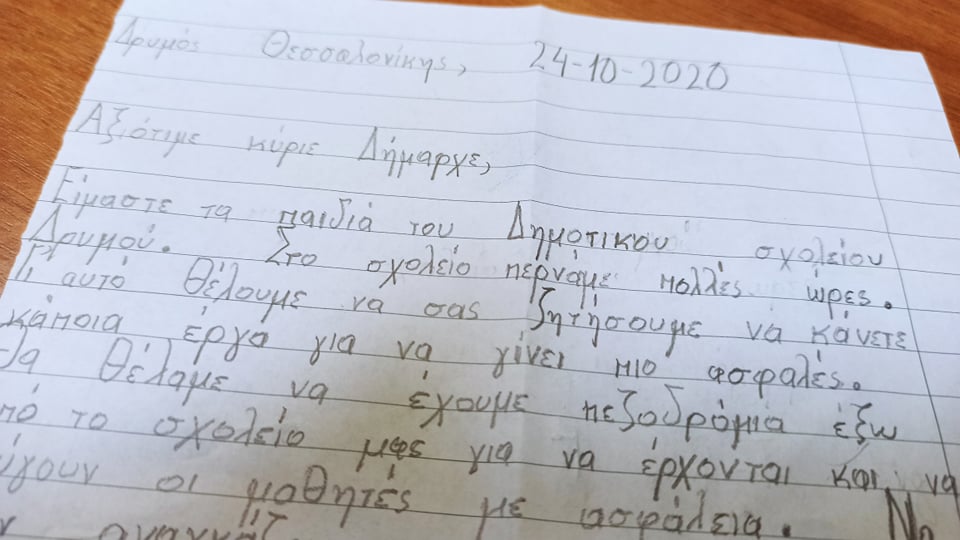 Δρυμός Θεσσαλονίκης, 24-10-2020
Αξιότιμε κύριε Δήμαρχε,
Είμαστε τα παιδιά του Δημοτικού σχολείου
Δρυμού. Στο σχολείο περνάμε πολλές ώρες.
Γι αυτό θέλουμε να σας ζητήσουμε να κάνετε
κάποια έργα για να γίνει πιο ασφαλές.
Θα θέλαμε να έχουμε πεζοδρόμια έξω
πό το σχολείο μας για να έρχονται και να
ύγουν οι μαθητές με ασφάλεια. Να